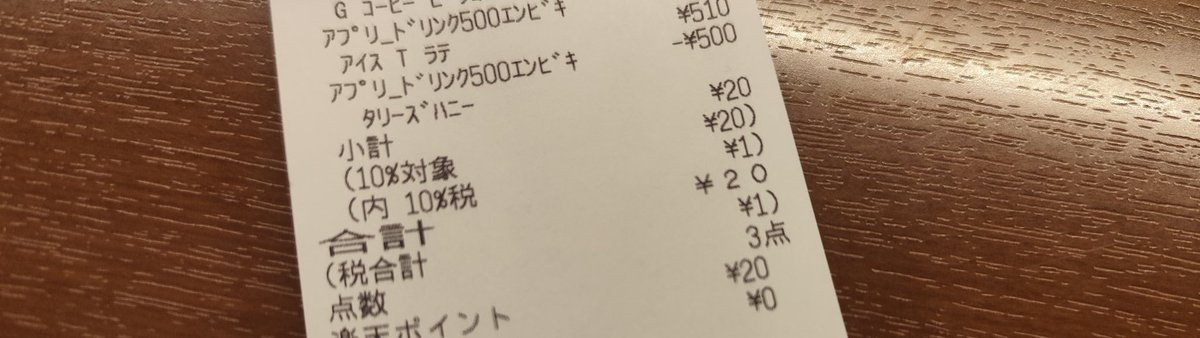 G コーヒー
アプリ_ドリンク500エンビキ
アイス T ラテ ¥510
アプリ_ドリンク500エンビキ -¥500
タリーズハニー
小計 ¥20
(10%対象 ¥20)
(内 10%税 ¥1)
合計 ¥20
(税合計 ¥1)
点数 3点
楽天ポイント ¥20
¥0